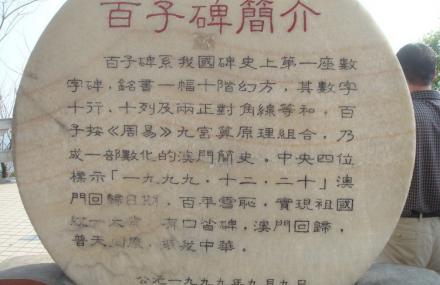 百子碑簡介
百子碑系我國碑史上第一座數
字碑，銘書一幅十階幻方，其數字
十行、十列及兩正對角線等和，百
子按《周易》九宮算原理組合，乃
成一部數化的澳門簡史，中央四位
標示「一九九九·十二·二十」澳
門回歸日期，百年雪恥，實現祖國
統一大業，有口皆碑，澳門回歸，
普天同慶，華我中華。
公元一九九九年九月九日